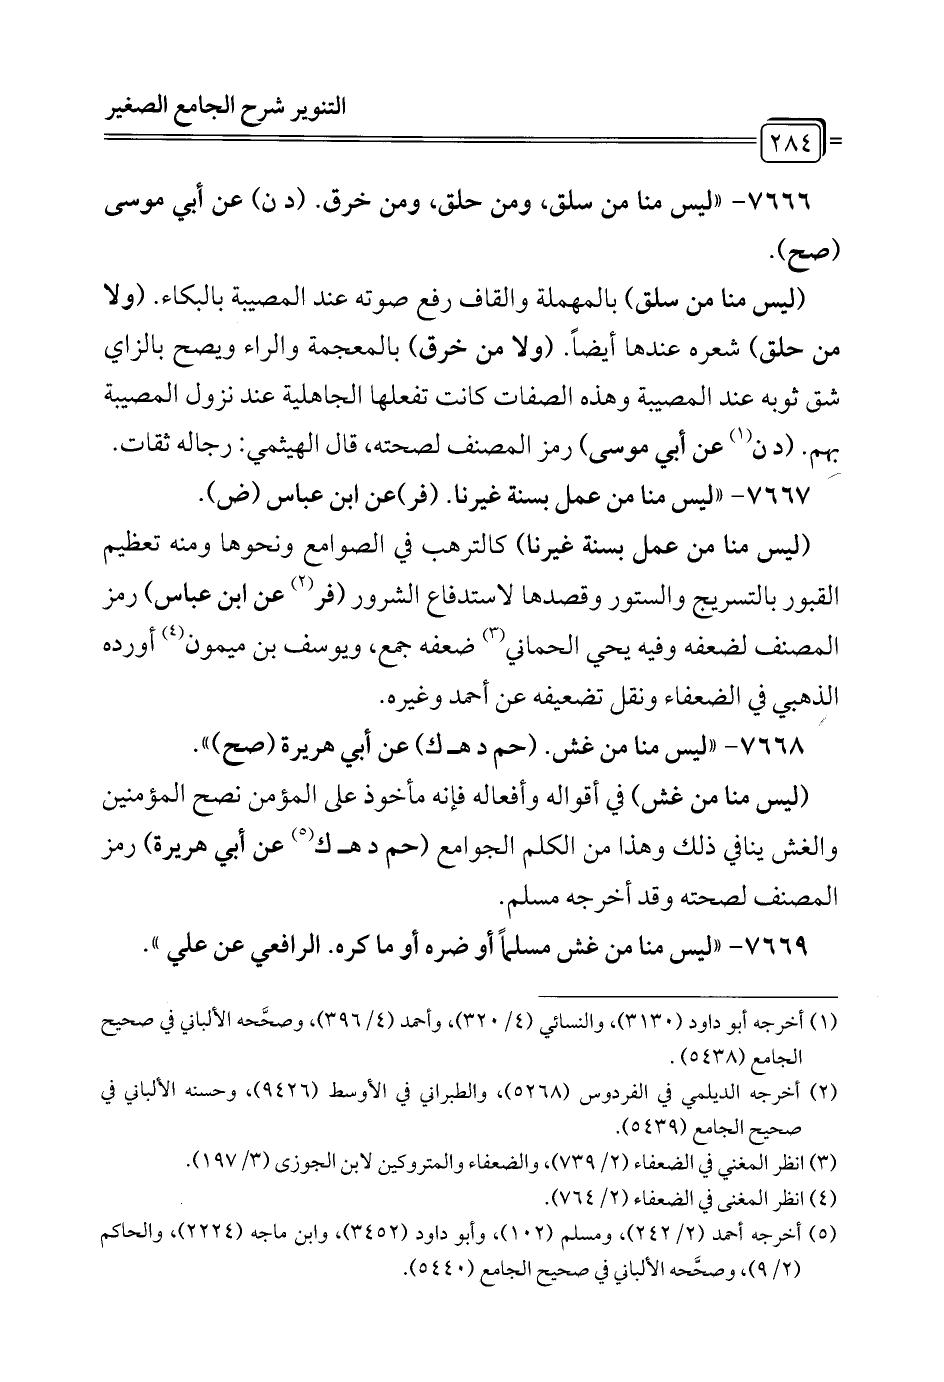 التنوير شرح الجامع الصغير
٢٨٤
٧٦٦٦- «ليس منا من سلق، ومن حلق، ومن خرق. (د ن) عن أبي موسى
(صح).
(ليس منا من سلق) بالمهملة والقاف رفع صوته عند المصيبة بالبكاء. (ولا
من حلق) شعره عندها أيضاً. (ولا من خرق) بالمعجمة والراء ويصح بالزاي
شق ثوبه عند المصيبة وهذه الصفات كانت تفعلها الجاهلية عند نزول المصيبة
بهم. (د ن(١) عن أبي موسى) رمز المصنف لصحته، قال الهيثمي: رجاله ثقات.
٧٦٦٧- «ليس منا من عمل بسنة غيرنا. (فر)عن ابن عباس (ض).
(ليس منا من عمل بسنة غيرنا) كالترهب في الصوامع ونحوها ومنه تعظيم
القبور بالتسريج والستور وقصدها لاستدفاع الشرور (فر(٢) عن ابن عباس) رمز
المصنف لضعفه وفيه يحي الحماني(٣) ضعفه جمع، ويوسف بن ميمون(٤) أورده
الذهبي في الضعفاء ونقل تضعيفه عن أحمد وغيره.
٧٦٦٨- «ليس منا من غش. (حم د هـ ك) عن أبي هريرة (صح)».
(ليس منا من غش) في أقواله وأفعاله فإنه مأخوذ على المؤمن نصح المؤمنين
والغش ينافي ذلك وهذا من الكلم الجوامع (حم د هـ ك(٥) عن أبي هريرة) رمز
المصنف لصحته وقد أخرجه مسلم.
٧٦٦٩- «ليس منا من غش مسلماً أو ضره أو ما كره. الرافعي عن علي ».
(١) أخرجه أبو داود (٣١٣٠)، والنسائي (٤/ ٣٢٠)، وأحمد (٤/ ٣٩٦)، وصحَّحه الألباني في صحيح
الجامع (٥٤٣٨) .
(٢) أخرجه الديلمي في الفردوس (٥٢٦٨)، والطبراني في الأوسط (٩٤٢٦)، وحسنه الألباني في
صحيح الجامع (٥٤٣٩).
(٣) انظر المغني في الضعفاء (٢/ ٧٣٩)، والضعفاء والمتروكين لابن الجوزى (٣/ ١٩٧).
(٤) انظر المغنى في الضعفاء (٢/ ٧٦٤).
(٥) أخرجه أحمد (٢/ ٢٤٢)، ومسلم (١٠٢)، وأبو داود (٣٤٥٢)، وابن ماجه (٢٢٢٤)، والحاكم
(٢/ ٩)، وصحَّحه الألباني في صحيح الجامع (٥٤٤٠).